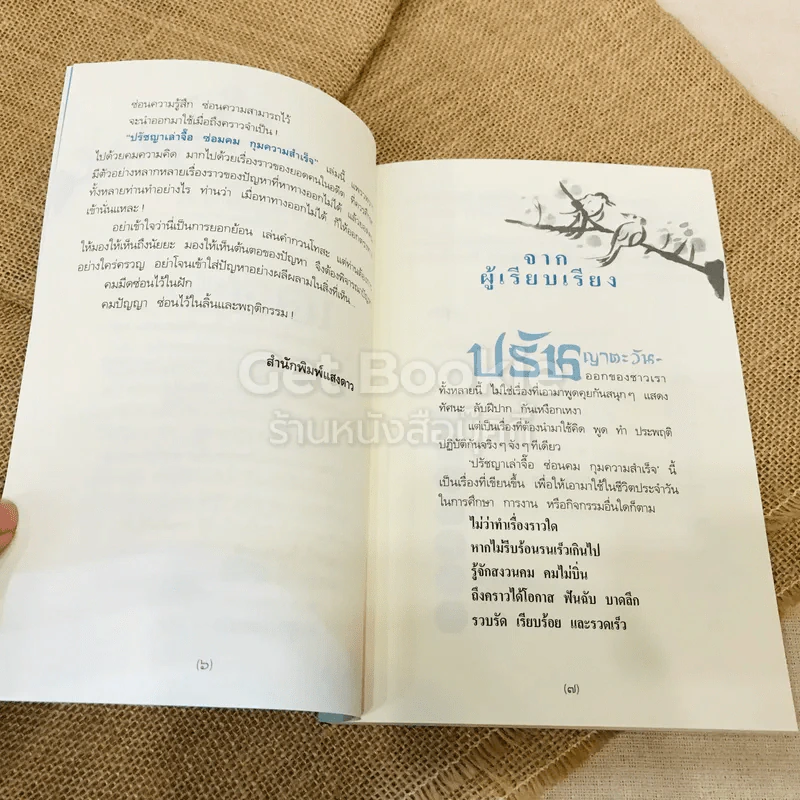 ซ่อนความรู้สึก ซ่อนความสามารถไว้
จะนำออกมาใช้เมื่อถึงคราวจำเป็น !
"ปรัชญาเล่าจื๊อ ซ่อนคม กุมความสำเร็จ" เล่มนี้
ไปด้วยคมความคิด มากไปด้วยเรื่องราวของยอดคนในอดีต
มีตัวอย่างหลากหลายเรื่องราวของปัญหาที่หาทางออกไม่ได้
ทั้งหลายท่านทำอย่างไร ท่านว่า เมื่อหาทางออกไม่ได้ ก็ให้ออกตรงทาง
เข้านั่นแหละ !
อย่าเข้าใจว่านี่เป็นการยอกย้อน เล่นคำกวนโทสะ
ให้มองให้เห็นถึงนัยยะ มองให้เห็นต้นตอของปัญหา จึงต้องพิจารณา
อย่างใคร่ครวญ อย่าโจนเข้าใส่ปัญหาอย่างผลีผลามในสิ่งที่เห็น...
คมมีดซ่อนไว้ในฝัก
คมปัญญา ซ่อนไว้ในลิ้นและพฤติกรรม !
สำนักพิมพ์แสงดาว
(๖)
จาก
ผู้เรียบเรียง
ปรัชญาตะวัน-
ออกของชาวเรา
ทั้งหลายนี้ ไม่ใช่เรื่องที่เอามาพูดคุยกันสนุกๆ แสดง
ทัศนะ ลับฝีปาก กันเหงือกเหงา
แต่เป็นเรื่องที่ต้องนำมาใช้คิด พูด ทำ ประพฤติ
ปฏิบัติกันจริงๆ จังๆ ทีเดียว
'ปรัชญาเล่าจื๊อ ซ่อนคม กุมความสำเร็จ' นี้
เป็นเรื่องที่เขียนขึ้น เพื่อให้เอามาใช้ในชีวิตประจำวัน
ในการศึกษา การงาน หรือกิจกรรมอื่นใดก็ตาม
ไม่ว่าทำเรื่องราวใด
หากไม่รีบร้อนรนเร็วเกินไป
รู้จักสงวนคม คมไม่บิ่น
ถึงคราวได้โอกาส ฟันฉับ บาดลึก
รวบรัด เรียบร้อย และรวดเร็ว
(๗)
Get Bookie
ร้านหนังสือบุ๊คกี้